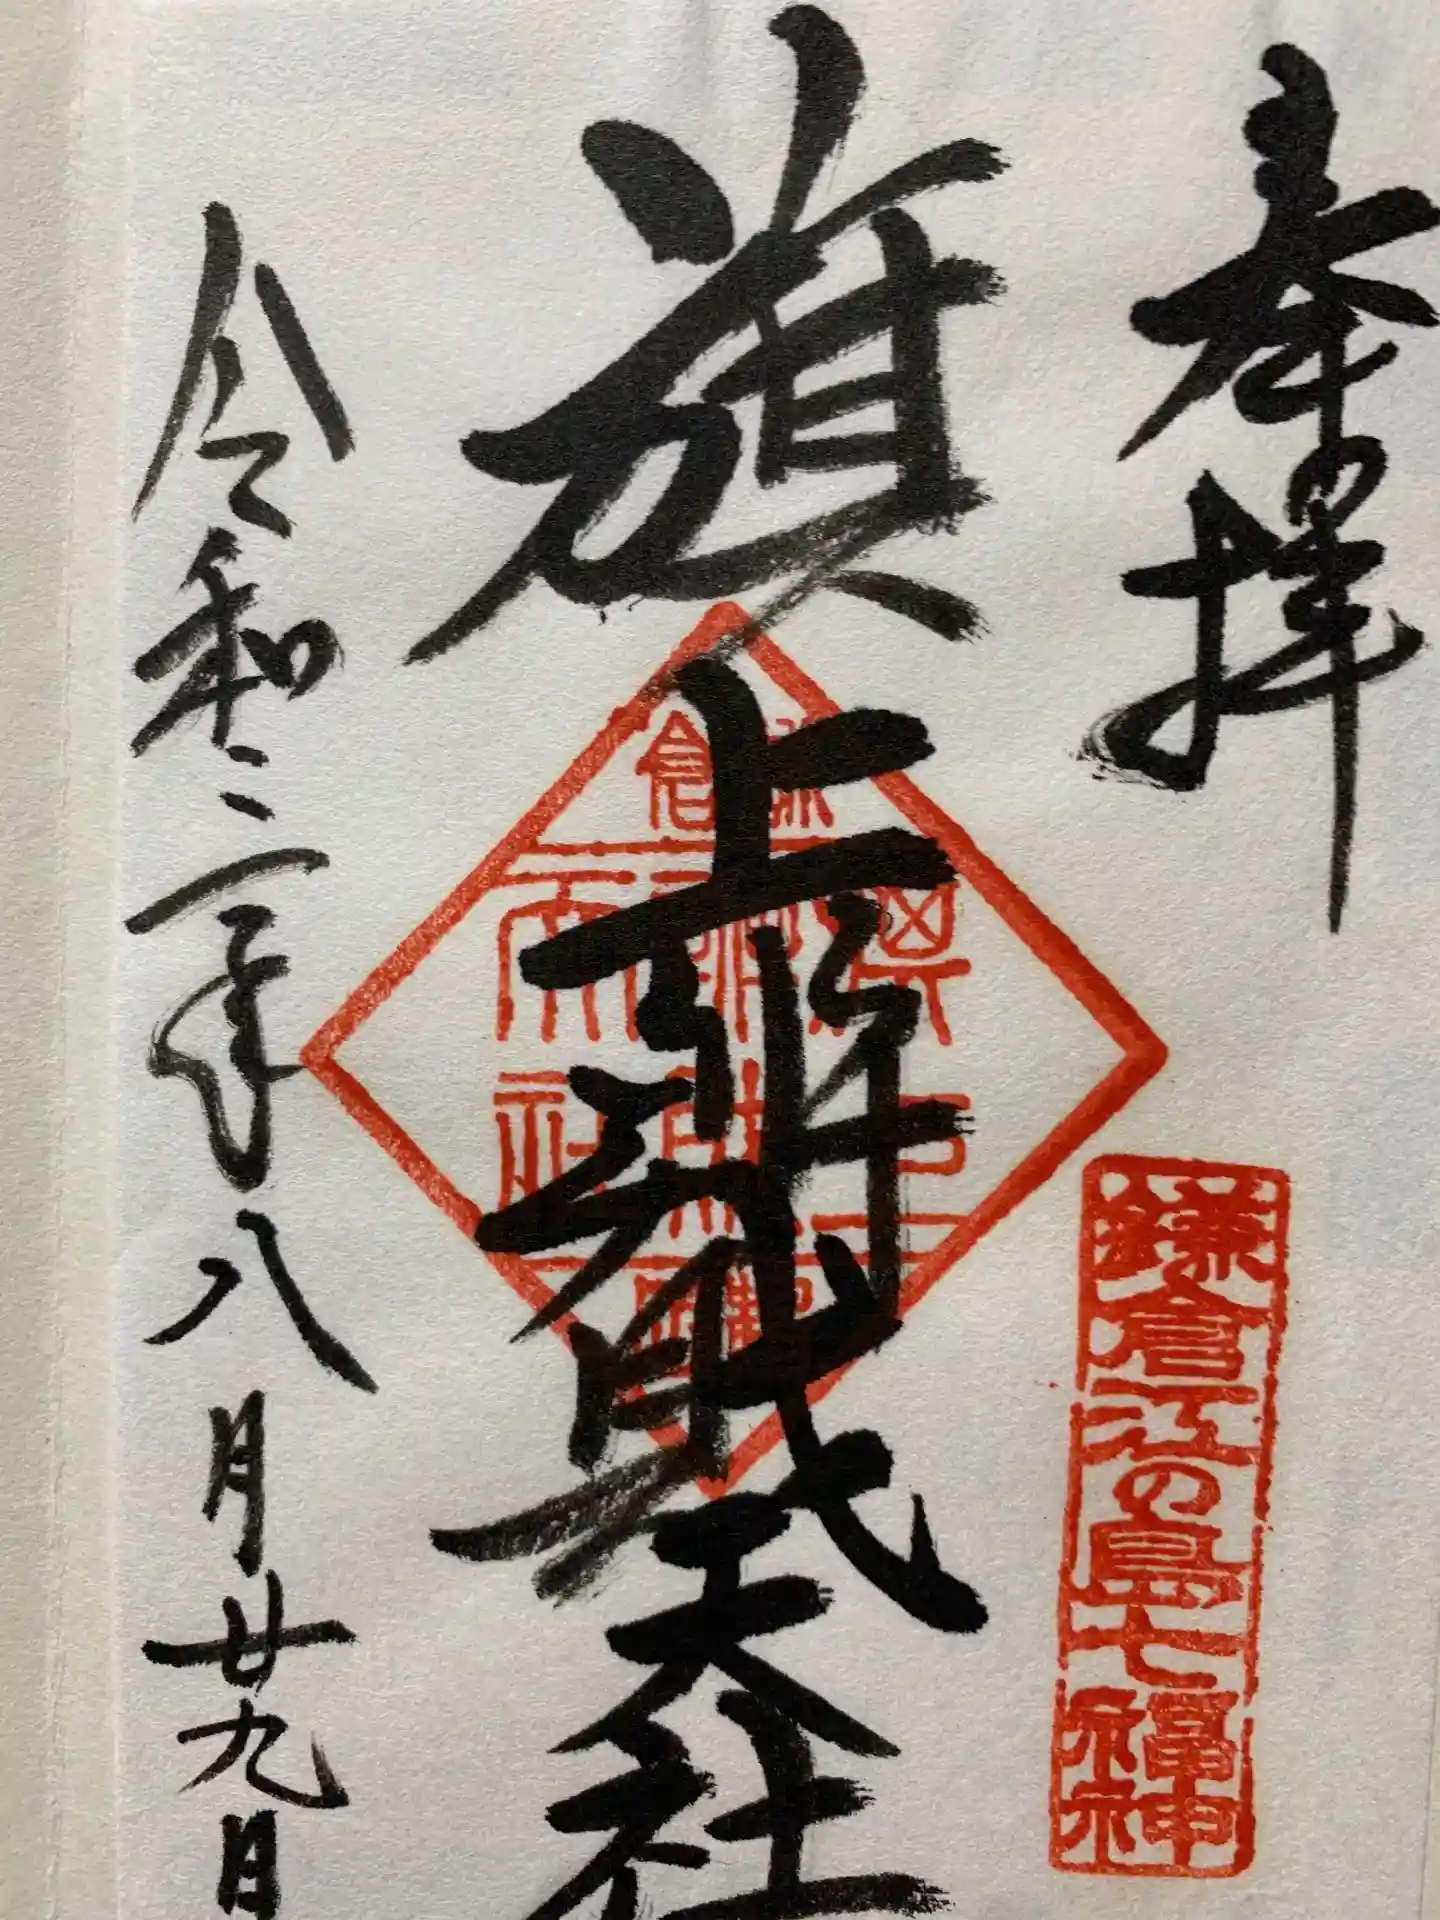 奉拝
鎌倉江の島七福神
旗上辨財天社
令和二年八月廿九日